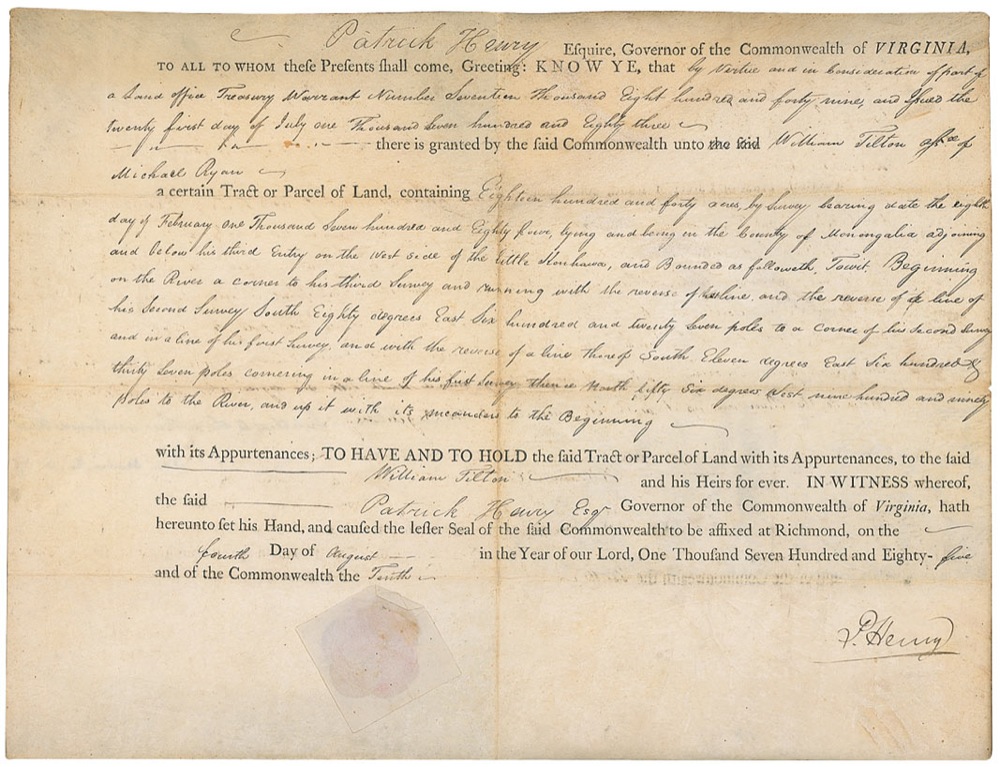 Patrick Henry Eſquire, Governor of the Commonwealth of VIRGINIA,
TO ALL TO WHOM theſe Preſents ſhall come, Greeting: KNOW YE, that by Virtue and in Consideration of part of
a Land office Treasury Warrant Number Seventeen Thousand Eight hundred and forty nine, and Issued the
twenty first day of July one Thousand Seven hundred and Eighty three
there is granted by the ſaid Commonwealth unto the ſaid William Tilton aſsee of
Michael Ryan
a certain Tract or Parcel of Land, containing Eighteen hundred and forty acres, by Survey bearing date the eighth
day of February one Thousand Seven hundred and Eighty four, lying and being in the County of Monongalia adjoining
and below his third Entry on the West side of the little Konhawa, and Bounded as followeth, Towit, Beginning
on the River a corner to his third Survey and running with the reverse of line, and the reverse of a line of
his Second Survey South Eighty degrees East Six hundred and twenty Seven poles to a corner of his second Survey
and in a line of his first Survey, and with the reverse of a line thereof South Eleven degrees East Six hundred &
thirty Seven poles cornering in a line of his first Survey thence North fifty Six degrees West nine hundred and ninety
Poles to the River, and up it with its meanders to the Beginning
with its Appurtenances; TO HAVE AND TO HOLD the ſaid Tract or Parcel of Land with its Appurtenances, to the ſaid
William Tilton and his Heirs for ever. IN WITNESS whereof,
the ſaid Patrick Henry Esqr Governor of the Commonwealth of Virginia, hath
hereunto ſet his Hand, and cauſed the leſſer Seal of the ſaid Commonwealth to be affixed at Richmond, on the
fourth Day of August in the Year of our Lord, One Thouſand Seven Hundred and Eighty- five
and of the Commonwealth the Tenth
P. Henry